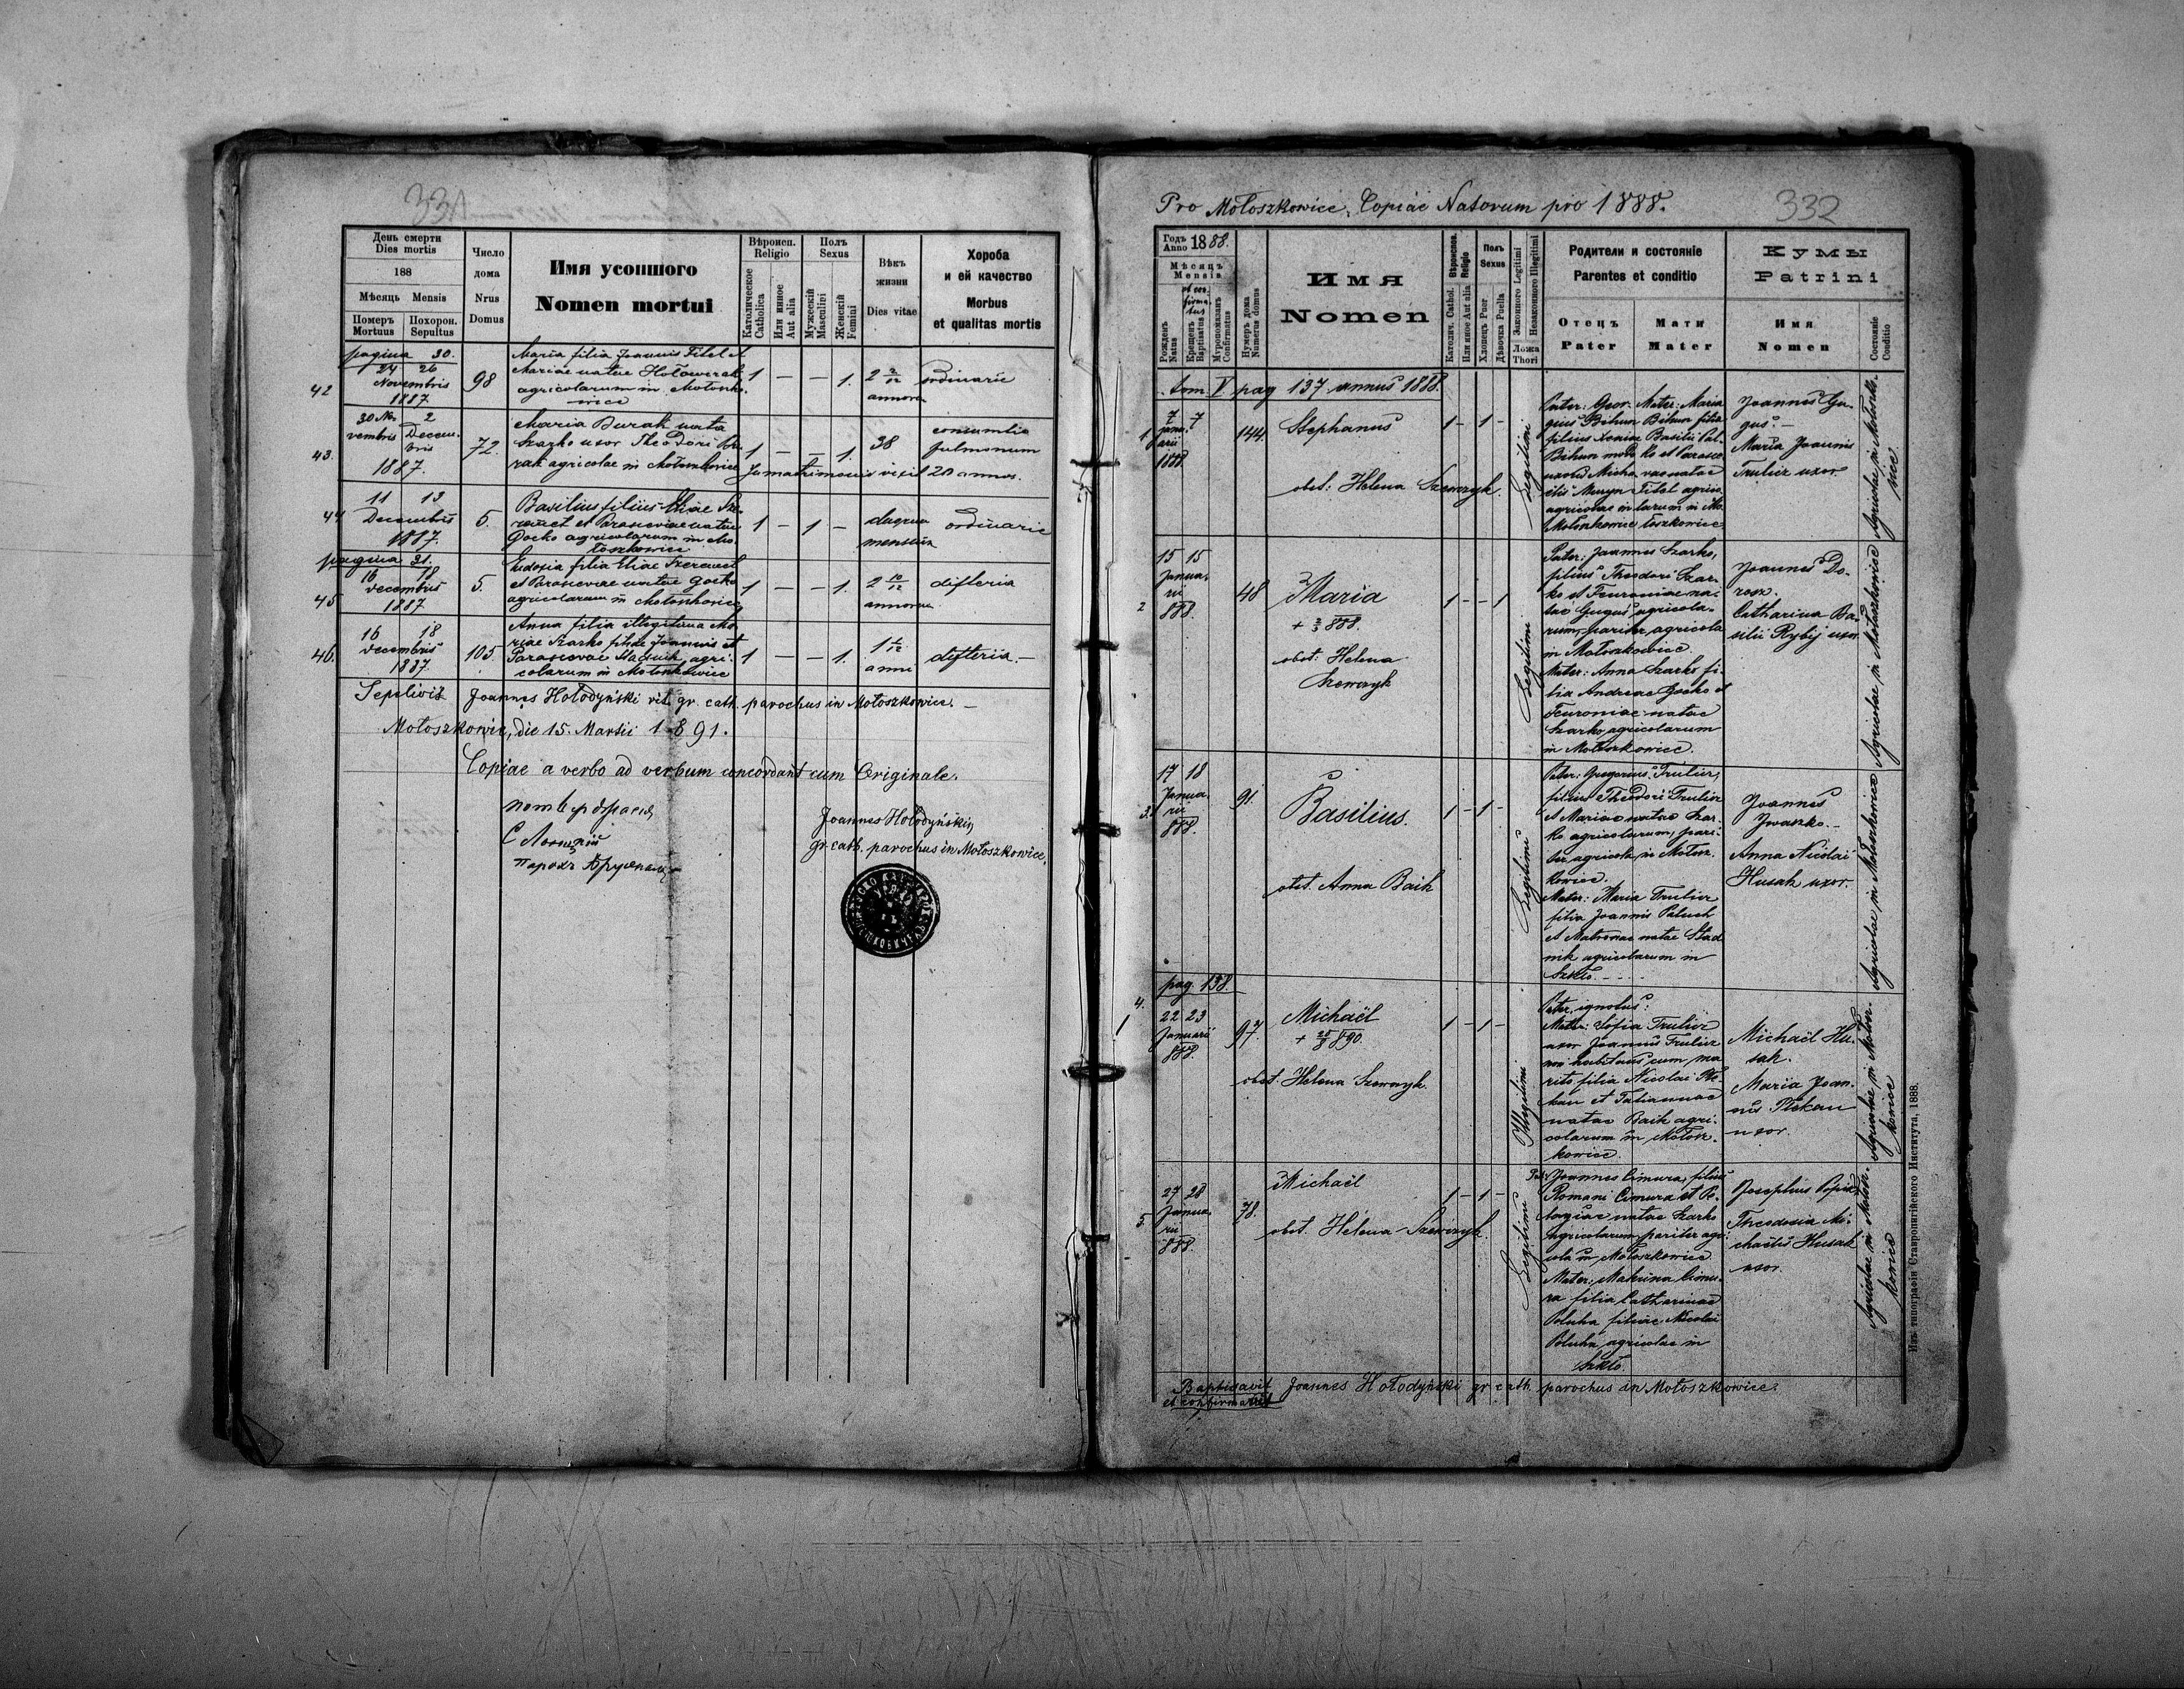 331
День смерти
Dies mortis
188
Мѣсяць Mensis
Померъ
Mortuus
Похорон.
Sepultus
Число
дома
Nrus
Domus
Имя усопшого
Nomen mortui
Вѣроисп.
Religio
Католическое
Catholica
Или инное
Aut alia
Полъ
Sexus
Мужескій
Masculini
Женскій
Femini
Вѣкъ
жизни
Dies vitae
Хороба
и ей качество
Morbus
et qualitas mortis
pagina 30.
42
24 26
Novembris
1887
98
Maria filia Joannis Fitel et
Mariae natae
agricolarum in Motoszko-
wice
1 — — 1.
2 2/12
annorum
ordinarie
43.
30 No- 2
vembris Decem-
bris
1887.
72.
Maria Burak nata
Szarko uxor Theodori Bu-
rak agricolae in Motoszkowice
1 — — 1.
38
pulmonum
In matrimonio vixit 20 annos.
44
11 13
Decembris
1887.
5.
Basilius filius Eliae Sze-
remet et Parasceviae natae
Gocko agricolarum in Mo-
toszkowice
1 — 1 —
mensium
ordinarie
pagina 31.
45
16 18
decembris
1887
5.
Eudoxia filia Eliae Szeremet
et Parasceviae natae Gocko
agricolarum in Motoszkowice
1 — — 1.
2 10/12
annorum
difteria
46.
16 18
decembris
1887.
105
Anna filia illegitima Ma-
riae Szarko filiae Joannis et
Parascevae Stadnik agri-
colarum in Motoszkowice
1 — — 1.
anni
difteria. —
Sepelivit Joannes Hołodyński rit. gr. cath. parochus in Mołoszkowice. —
Mołoszkowice, die 15. Martii 1891.
Copiae a verbo ad verbum concordant cum Originale.
Joannes Hołodyński
gr. cath. parochus in Mołoszkowice.
Pro Mołoszkowice. Copiae Natorum pro 1888.
332
Годъ
Anno 1888.
Мѣсяцъ
Mensis
et con-
firma-
tus
Рожденъ
Natus
Крещенъ
Baptisatus
Мѵропомазанъ
Confirmatus
Нумеръ дома
Numerus domus
Имя
Nomen
Вѣроиспов.
Religio
Католич. Cathol.
Или инное Aut alia
Полъ
Sexus
Хлопецъ Puer
Дѣвочка Puella
Законного Legitimi
Незаконного Illegitimi
Ложа
Thori
Родители и состояніе
Parentes et conditio
Отецъ
Pater
Мати
Mater
Кумы
Patrini
Имя
Nomen
Состояніе
Conditio
tom. V pag 137 annus 1888.
1.
7 7
janu-
arii
1888.
144.
Stephanus
obst: Helena Szewczyk.
1 - 1 -
Legitimi
Pater: Geor- Mater: Maria
gius Bihun Bihun filia
agricolae in
Motoszkowice toszkowice
Joannes Gu-
gus. —
Maria Joannis
Trulicz uxor
2
15 15
Janua-
rii
888.
48
Maria
+ 2/3 888.
obst: Helena
Szewczyk
1 - - 1
Legitimi
Pater: Joannes Szarko,
filius Theodori Szar-
ko et Feuroniae na-
tae Gugus agricola-
rum, pariter agricola
in Motoszkowice.
Mater: Anna Szarko fi-
lia Andreae Gocko et
Feuroniae natae
Szarko, agricolarum
in Motoszkowice.
Joannes Do-
rosz.
Catharina Ba-
silii Rybij uxor
Agricolae, in Motoszkowice
3.
17 18
Janua-
rii
888.
91.
Basilius.
obst. Anna Baik
1 - 1 -
Legitimi
Pater: Gregorius Trulicz,
filius Theodori Trulicz
et Mariae natae Szar-
ko agricolarum, pari-
ter agricola in Motosz-
kowice.
Mater: Maria Trulicz
filia Joannis Paluch
et Matronae natae Stad
nik agricolarum in
Szkło.
Joannes
Iwaszko. —
Anna Nicolai
Husak uxor.
Agricolae, in Motoszkowice
pag. 138.
4.
22 23
Januarii
888.
97.
Michaël
+ 25/8 890.
obst. Helena Szewczyk.
1 - 1 -
Illegitimi
Pater, ignotus:
Mater: Sofia Trulicz
uxor Joannis Trulicz
non habitans cum ma
rito filia Nicolai Ple-
kan et Tatiannae
natae Baik agri-
colarum in Motosz-
kowice.
Michaël Hu-
sak.
Maria Joan-
nis Plekan
uxor.
Agricolae, in Motosz-
kowice
5.
27 28
Janua-
rii
888.
78.
Michaël
obst. Helena Szewczyk.
1 - 1 -
Legitimi
Joannes Cimura, filius
Romani Cimura et Pe-
lagiae natae Szarko
agricolarum, pariter agri-
cola in Motoszkowice
Mater: Matrina Cimu-
ra filia Catharinae
Poluha filiae Nicolai
Poluha, agricolae in
Szkło.
Josephus
Theodosia Mi-
chaëlis Husak
uxor.
Agricolae in Motosz-
kowice
Baptisavit
et confirmavit
Joannes Hołodyński gr. cath. parochus in Mołoszkowice.
Изъ типографіи Ставропигійского Института, 1888.